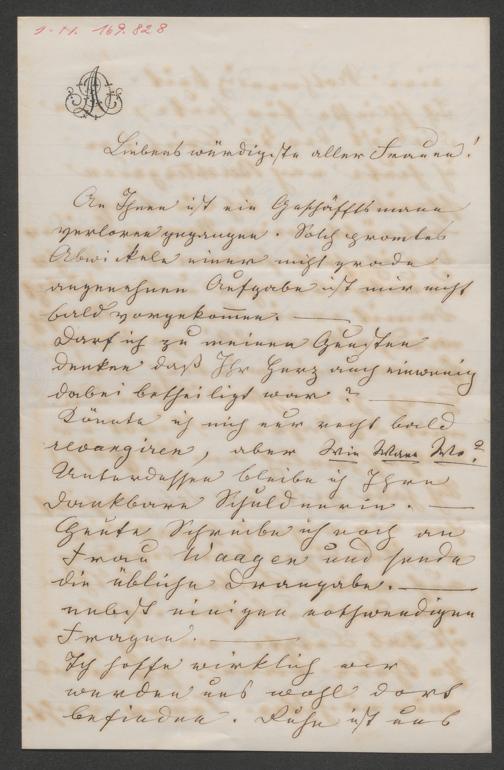 I. N. 169.828
Liebenswürdigste aller Frauen!
An Ihnen ist ein Geschäfftsmann
verloren gegangen. Solch promtes
Abwickeln einer nicht grade
angenehmen Aufgabe ist mir nicht
bald vorgekommen. —
Darf ich zu meinen Gunsten
denken daß Ihr Herz auch ein wenig
dabei betheiligt war? —
Könnte ich mich nur recht bald
revangiren, aber Wie Wann Wo?
Unterdessen bleibe ich Ihre
dankbare Schuldnerin. —
Heute Schreibe ich noch an
Frau Waagen und sende
die übliche Drangabe. —
nebst einigen nothwendigen
Fragen. —
Ich hoffe wirklich wir
werden uns wohl dort
befinden. Ruhe ist uns